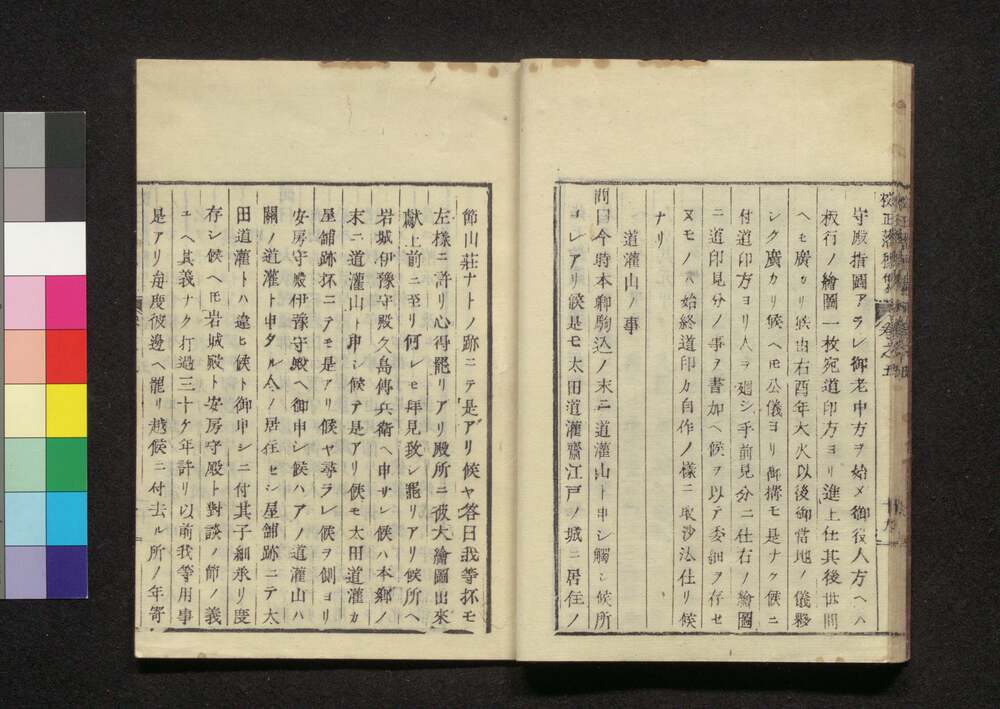 守殿指圖アラレ御老中方ヲ始メ御役人方ヘハ
板行ノ繪圖一枚宛道印方ヨリ進上仕其後世間
ヘモ廣カリ候由右酉年大火以後御當地ノ儀夥
シク廣カリ候ヘ𪜈公儀ヨリ御搆モ是ナク候ニ
付道印方ヨリ人ヲ廻シ手前見分ニ仕右ノ繪圖
ニ道印見分ノ事ヲ書加ヘ候ヲ以テ委細ヲ存セ
ヌモノハ始終道印カ自作ノ樣ニ取沙汰仕リ候
ナリ
道灌山ノ事
問曰今時本郷駒込ノ末ニ道灌山ト申シ觸シ候所
コレアリ候是モ太田道灌齋江戸ノ城ニ居住ノ
節山莊ナトノ跡ニテ是アリ候ヤ答曰我等抔モ
左樣ニ許リ心得罷リアリ殿所ニ彼大繪圖出來
献上前ニ至リ何レモ拜見致シ罷リアリ候所ヘ
岩城伊豫守殿久島傳兵衞ヘ申サレ候ハ本郷ノ
末ニ道灌山ト申シ候テ是アリ候モ太田道灌カ
屋舗跡抔ニテモ是アリ候ヤ尋ラレ候ヲ側ヨリ
安房守殿伊豫守殿ヘ御申シ候ハアノ道灌山ハ
關ノ道灌ト申タル人ノ居住セシ屋舗跡ニテ太
田道灌トハ違ヒ候ト御申シニ付其子細承リ度
存シ候ヘ𪜈岩城殿ト安房守殿ト對談ノ節ノ義
ユヘ其義ナク打過三十ケ年許リ以前我等用事
是アリ毎度彼邊ヘ罷リ越候ニ付去ル所ノ年寄